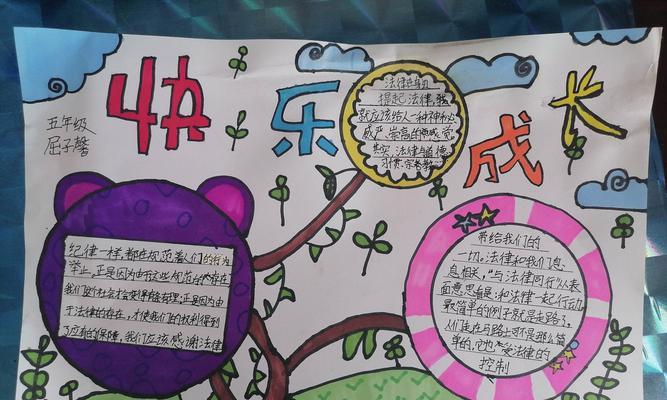 快乐成长
五年级
屈子馨
法律在身边
提起法律,我
就应该给人一种神秘
威严、崇高的感觉
其实,法律与道德
习惯、宗教教
纪律一样,都在规范着人们的行为
举止,正是因为有这些规范的存在
我们的社会才会变得有条有理,正是因为由
于法律的存在,才使我们的权利得到
了应有的保障,我们应该感谢法律
带给我们的
一切。法律和我们息
息相关,"与法律同行"从表
面意思看是:和法律一起行动
最简单的例子就是走路了。
人们走在马路上还不是那么简
单的,它也受法律的
控制